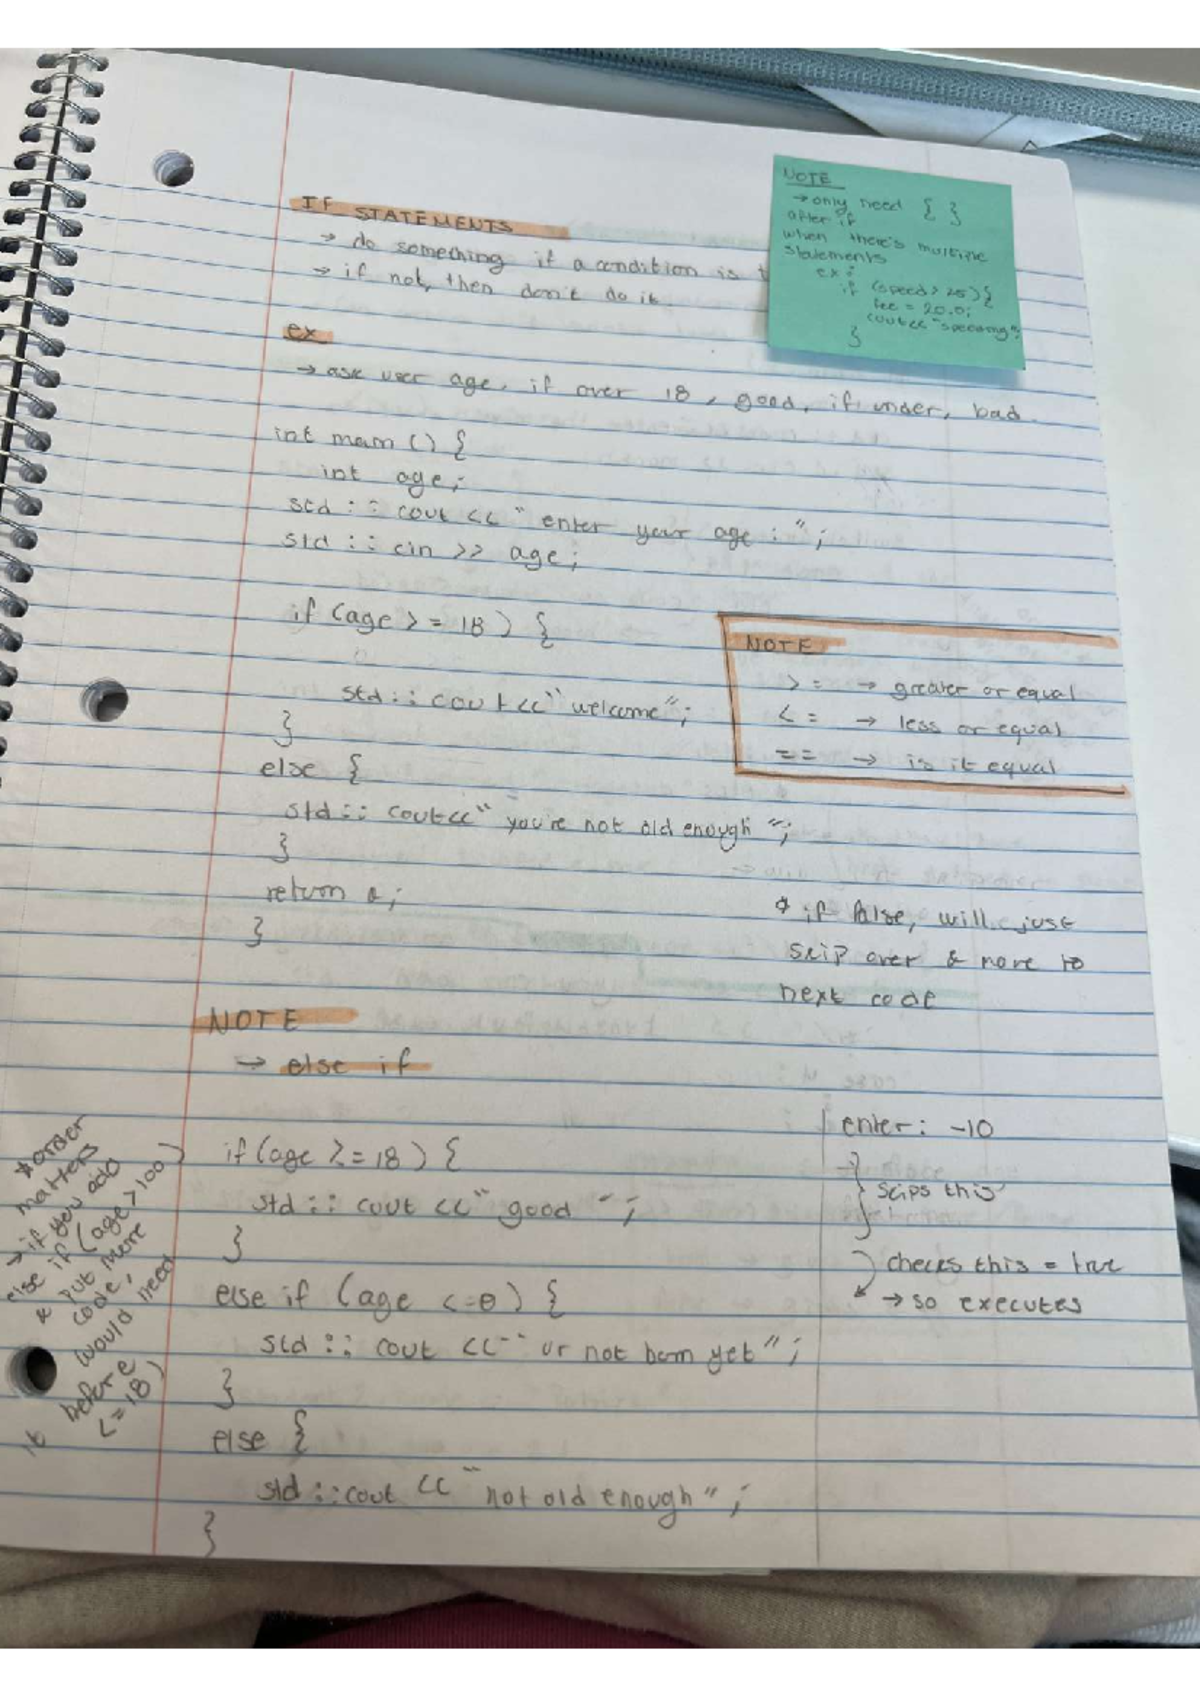 IF STATEMENTS
→ do something if a condition is t
→ if not, then don't do it.
NOTE
→ only need { }
after if
when there's multiple
statements
ex:
if (speed > 25) {
fee = 20.0;
cout << "speeding";
}
ex
→ ask user age. if over 18, good, if under, bad.
int main () {
int age;
std :: cout << " enter your age : " ;
std :: cin >> age ;
if (age > = 18 ) {
std :: cout << "welcome" ;
}
else {
std :: cout << " you're not old enough " ;
}
return 0 ;
}
NOTE
> = → greater or equal
< = → less or equal
== → is it equal
* if false, will just
skip over & move to
next code
NOTE
→ else if
if (age >= 18 ) {
std :: cout << " good " ;
}
else if (age <=0 ) {
std :: cout << " ur not born yet" ;
}
else {
std :: cout << " not old enough" ;
}
enter: -10
} skips this
checks this = true
→ so executes
*order
matters
→ if you add
else if (age > 100)
& put more
code,
would need
it before
L=18)